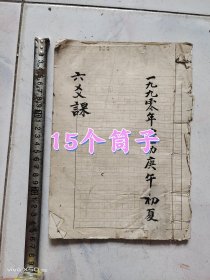 一九九零年
庚午 初夏
六爻課
15个筒子